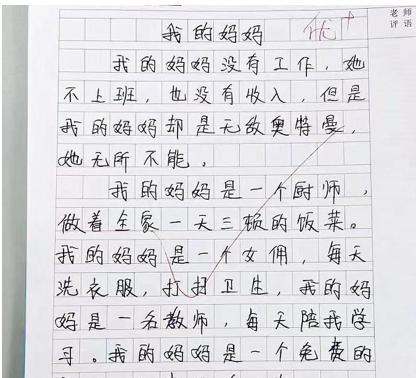 我的妈妈 优+ 老师
评语
我的妈妈没有工作，她
不上班，也没有收入，但是
我的妈妈却是无敌奥特曼，
她无所不能，
我的妈妈是一个厨师，
做着全家一天三顿的饭菜。
我的妈妈是一个女佣，每天
洗衣服，打扫卫生，我的妈
妈是一名教师，每天陪我学
习。我的妈妈是一个免费的